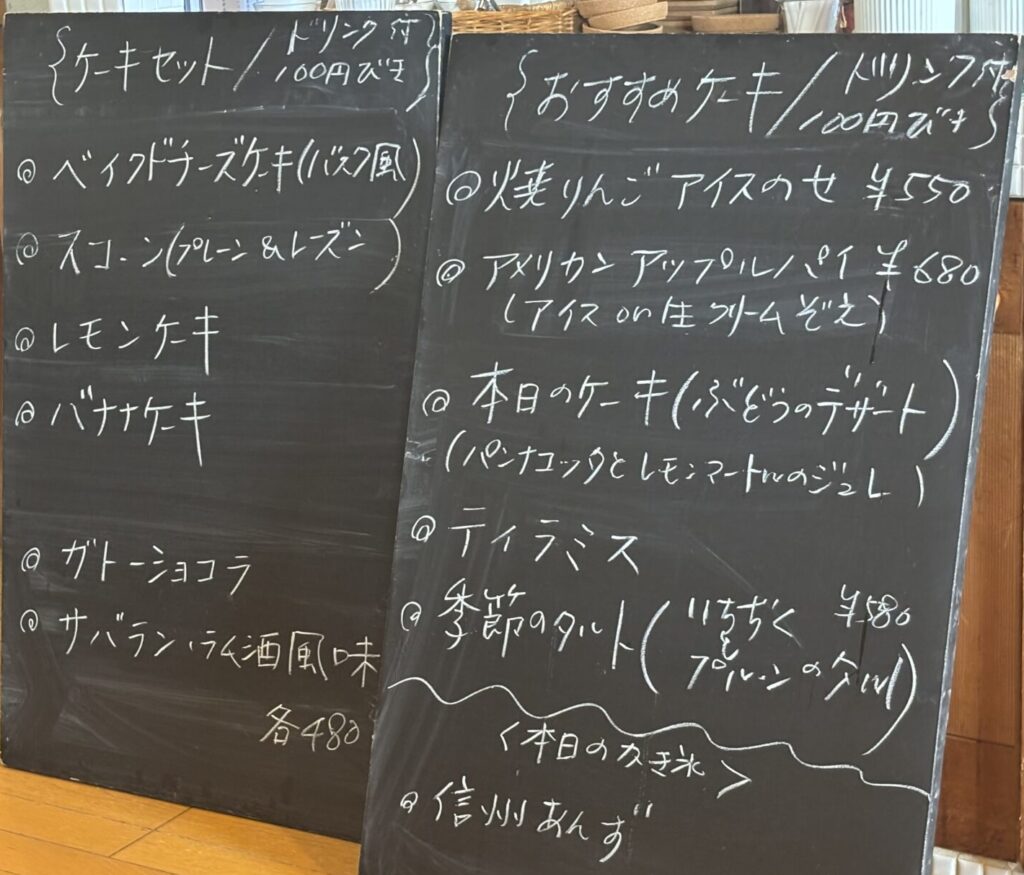 {ケーキセット/ドリンク付
100円びき}
◎ ベイクドチーズケーキ(バスク風)
◎ スコーン(プレーン&レーズン)
◎ レモンケーキ
◎ バナナケーキ
◎ ガトーショコラ
◎ サバラン ラム酒風味
各480
{おすすめケーキ/ドリンク付
100円びき}
◎ 焼りんごアイスのせ ¥550
◎ アメリカンアップルパイ ¥680
(アイス on 生クリームぞえ)
◎ 本日のケーキ(ぶどうのデザート)
(パンナコッタとレモンマートルのジュレ)
◎ ティラミス
◎ 季節のタルト(いちぢく ¥580
と
プルーンのタルト)
<本日のかき氷>
◎ 信州あんず